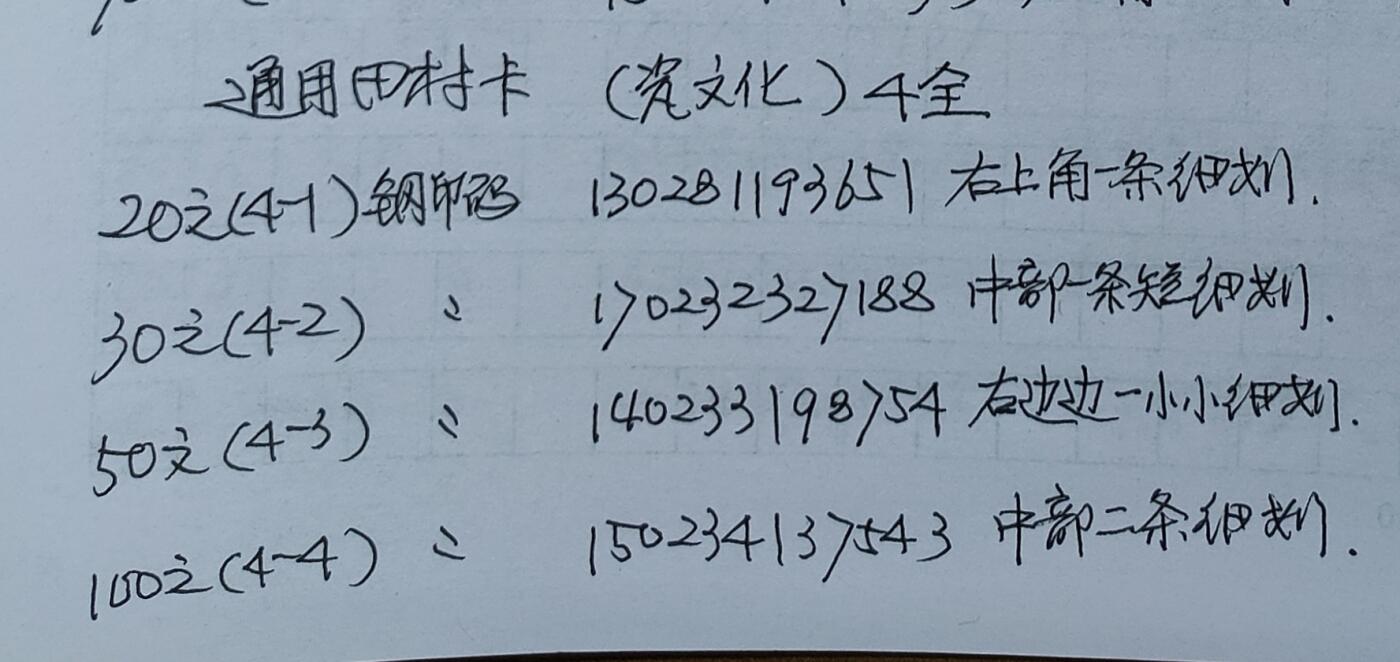 通用田村卡 (瓷文化) 4全
20元(4-1)钢印码 130281193651 右上角一条细划.
30元(4-2) 〃 170232327188 中部一条短细划.
50元(4-3) 〃 140233198754 右边边一小小细划.
100元(4-4) 〃 150234137543 中部二条细划.